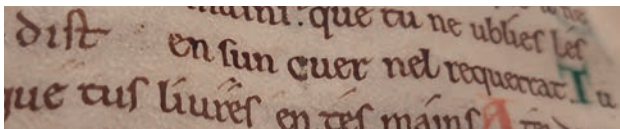 que tu ne ublies les
dist en sun cuer nel requerrat T u
que tuf liures en tes mains